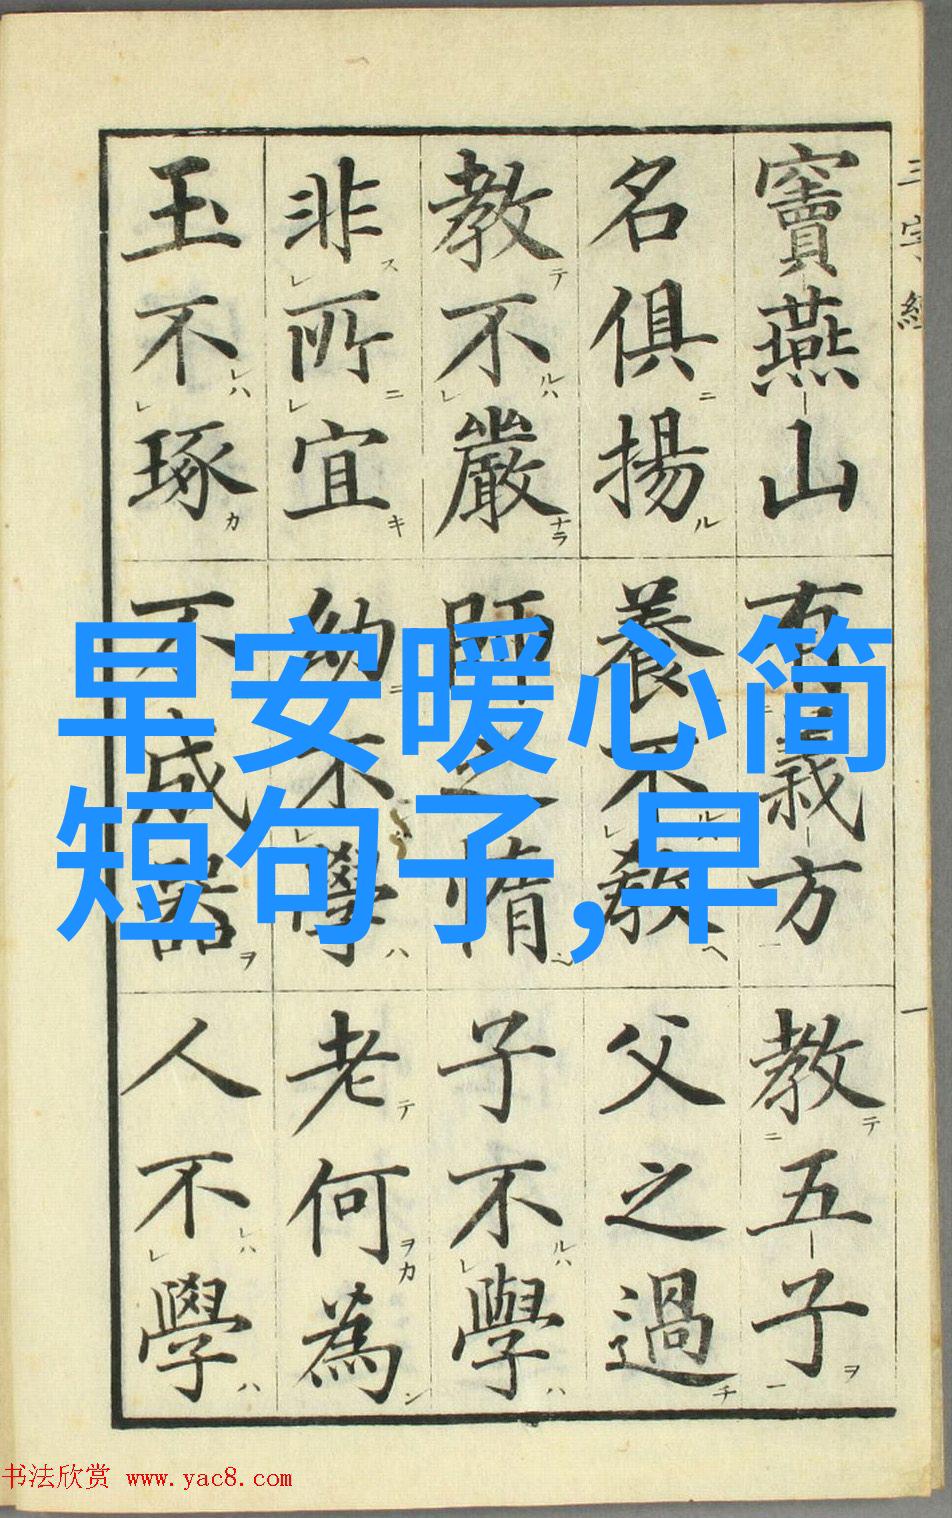 三字經
一
竇燕山有義方教五子
名俱揚養不教父之過
教不嚴師之惰子不學
非所宜幼不學老何為
玉不琢不成器人不學
早安暖心简
短句子,早
书法欣赏 www.yac8.com